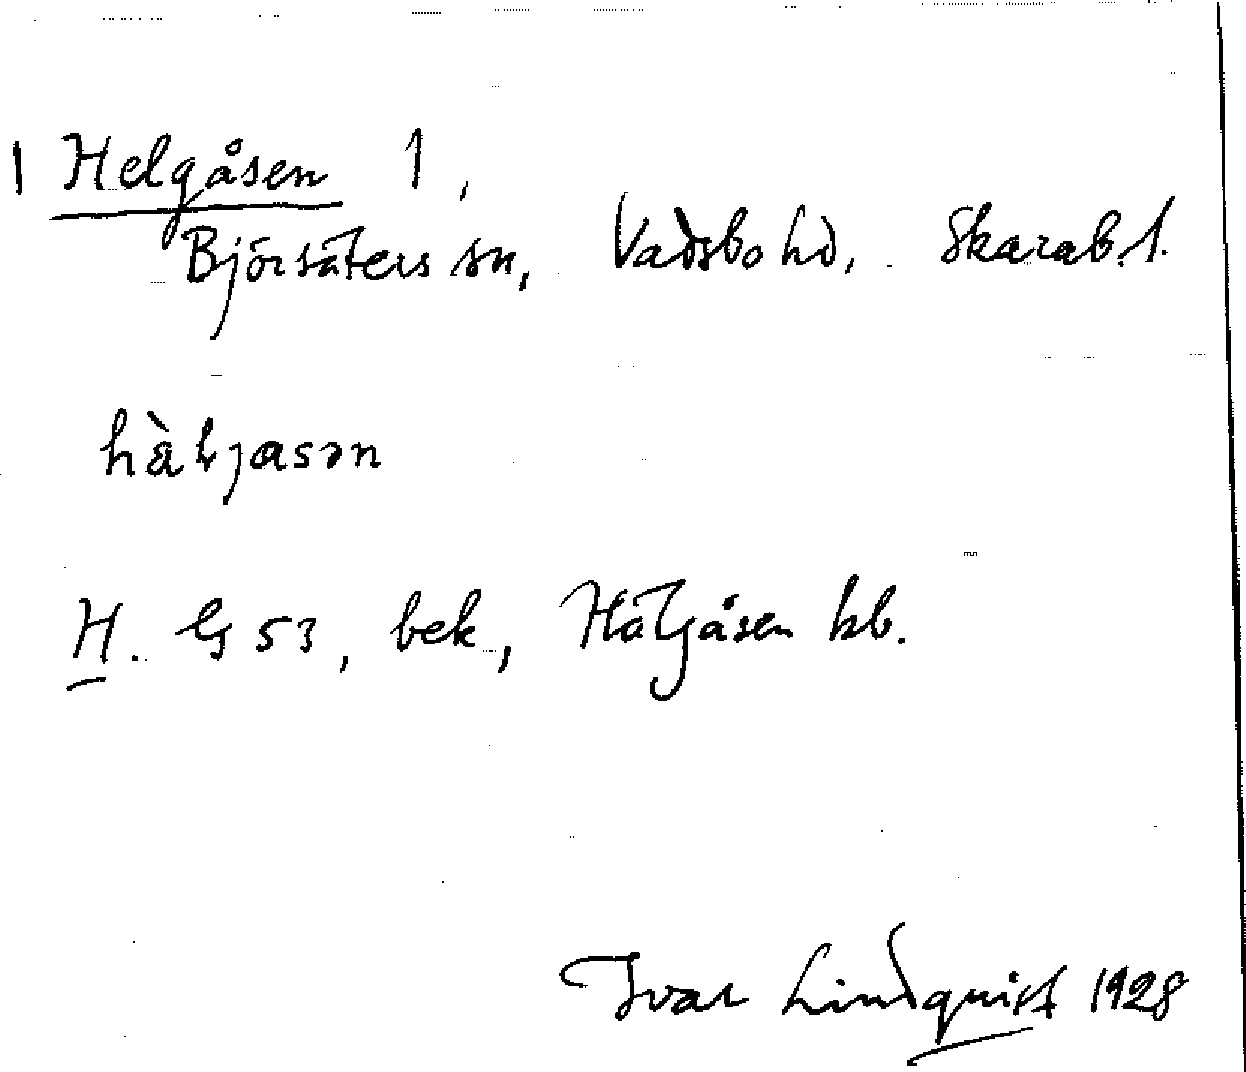 1 Helgåsen 1,
Björsäters sn, Vadsbo hd, Skarab.l.
hàljasən
H. GS 53, bek, Häljåsen kb.
Ivar Lindquist 1928